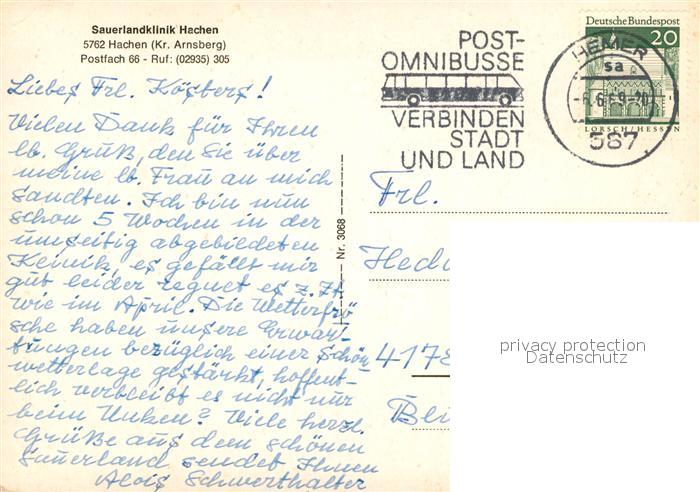 Sauerlandklinik Hachen
5762 Hachen (Kr. Arnsberg)
Postfach 66 - Ruf: (02935) 305
Liebes Frl. Kösters!
Vielen Dank für Ihren
lb. Gruß, den Sie über
meine lb. Frau an mich
sandten. Ich bin nun
schon 5 Wochen in der
umseitig abgebildeten
Kleinik, es gefällt mir
gut leider regnet es z. Zt.
wie im April. Die Wetterfrö-
sche haben unsere Erwar-
tungen bezüglich einer Schön-
wetterlage gestärkt, hoffent-
lich verbleibt es nicht nur
beim Unken? Viele herzl.
Grüße aus dem schönen
Sauerland sendet Ihnen
Alois Schwerthalter
Nr. 3068
POST-
OMNIBUSSE
VERBINDEN
STADT
UND LAND
Deutsche Bundespost
20
LORSCH/HESSEN
HEMER
sa
-6.6.69-20
587
Frl.
Hed
4178
Bl
privacy protection
Datenschutz